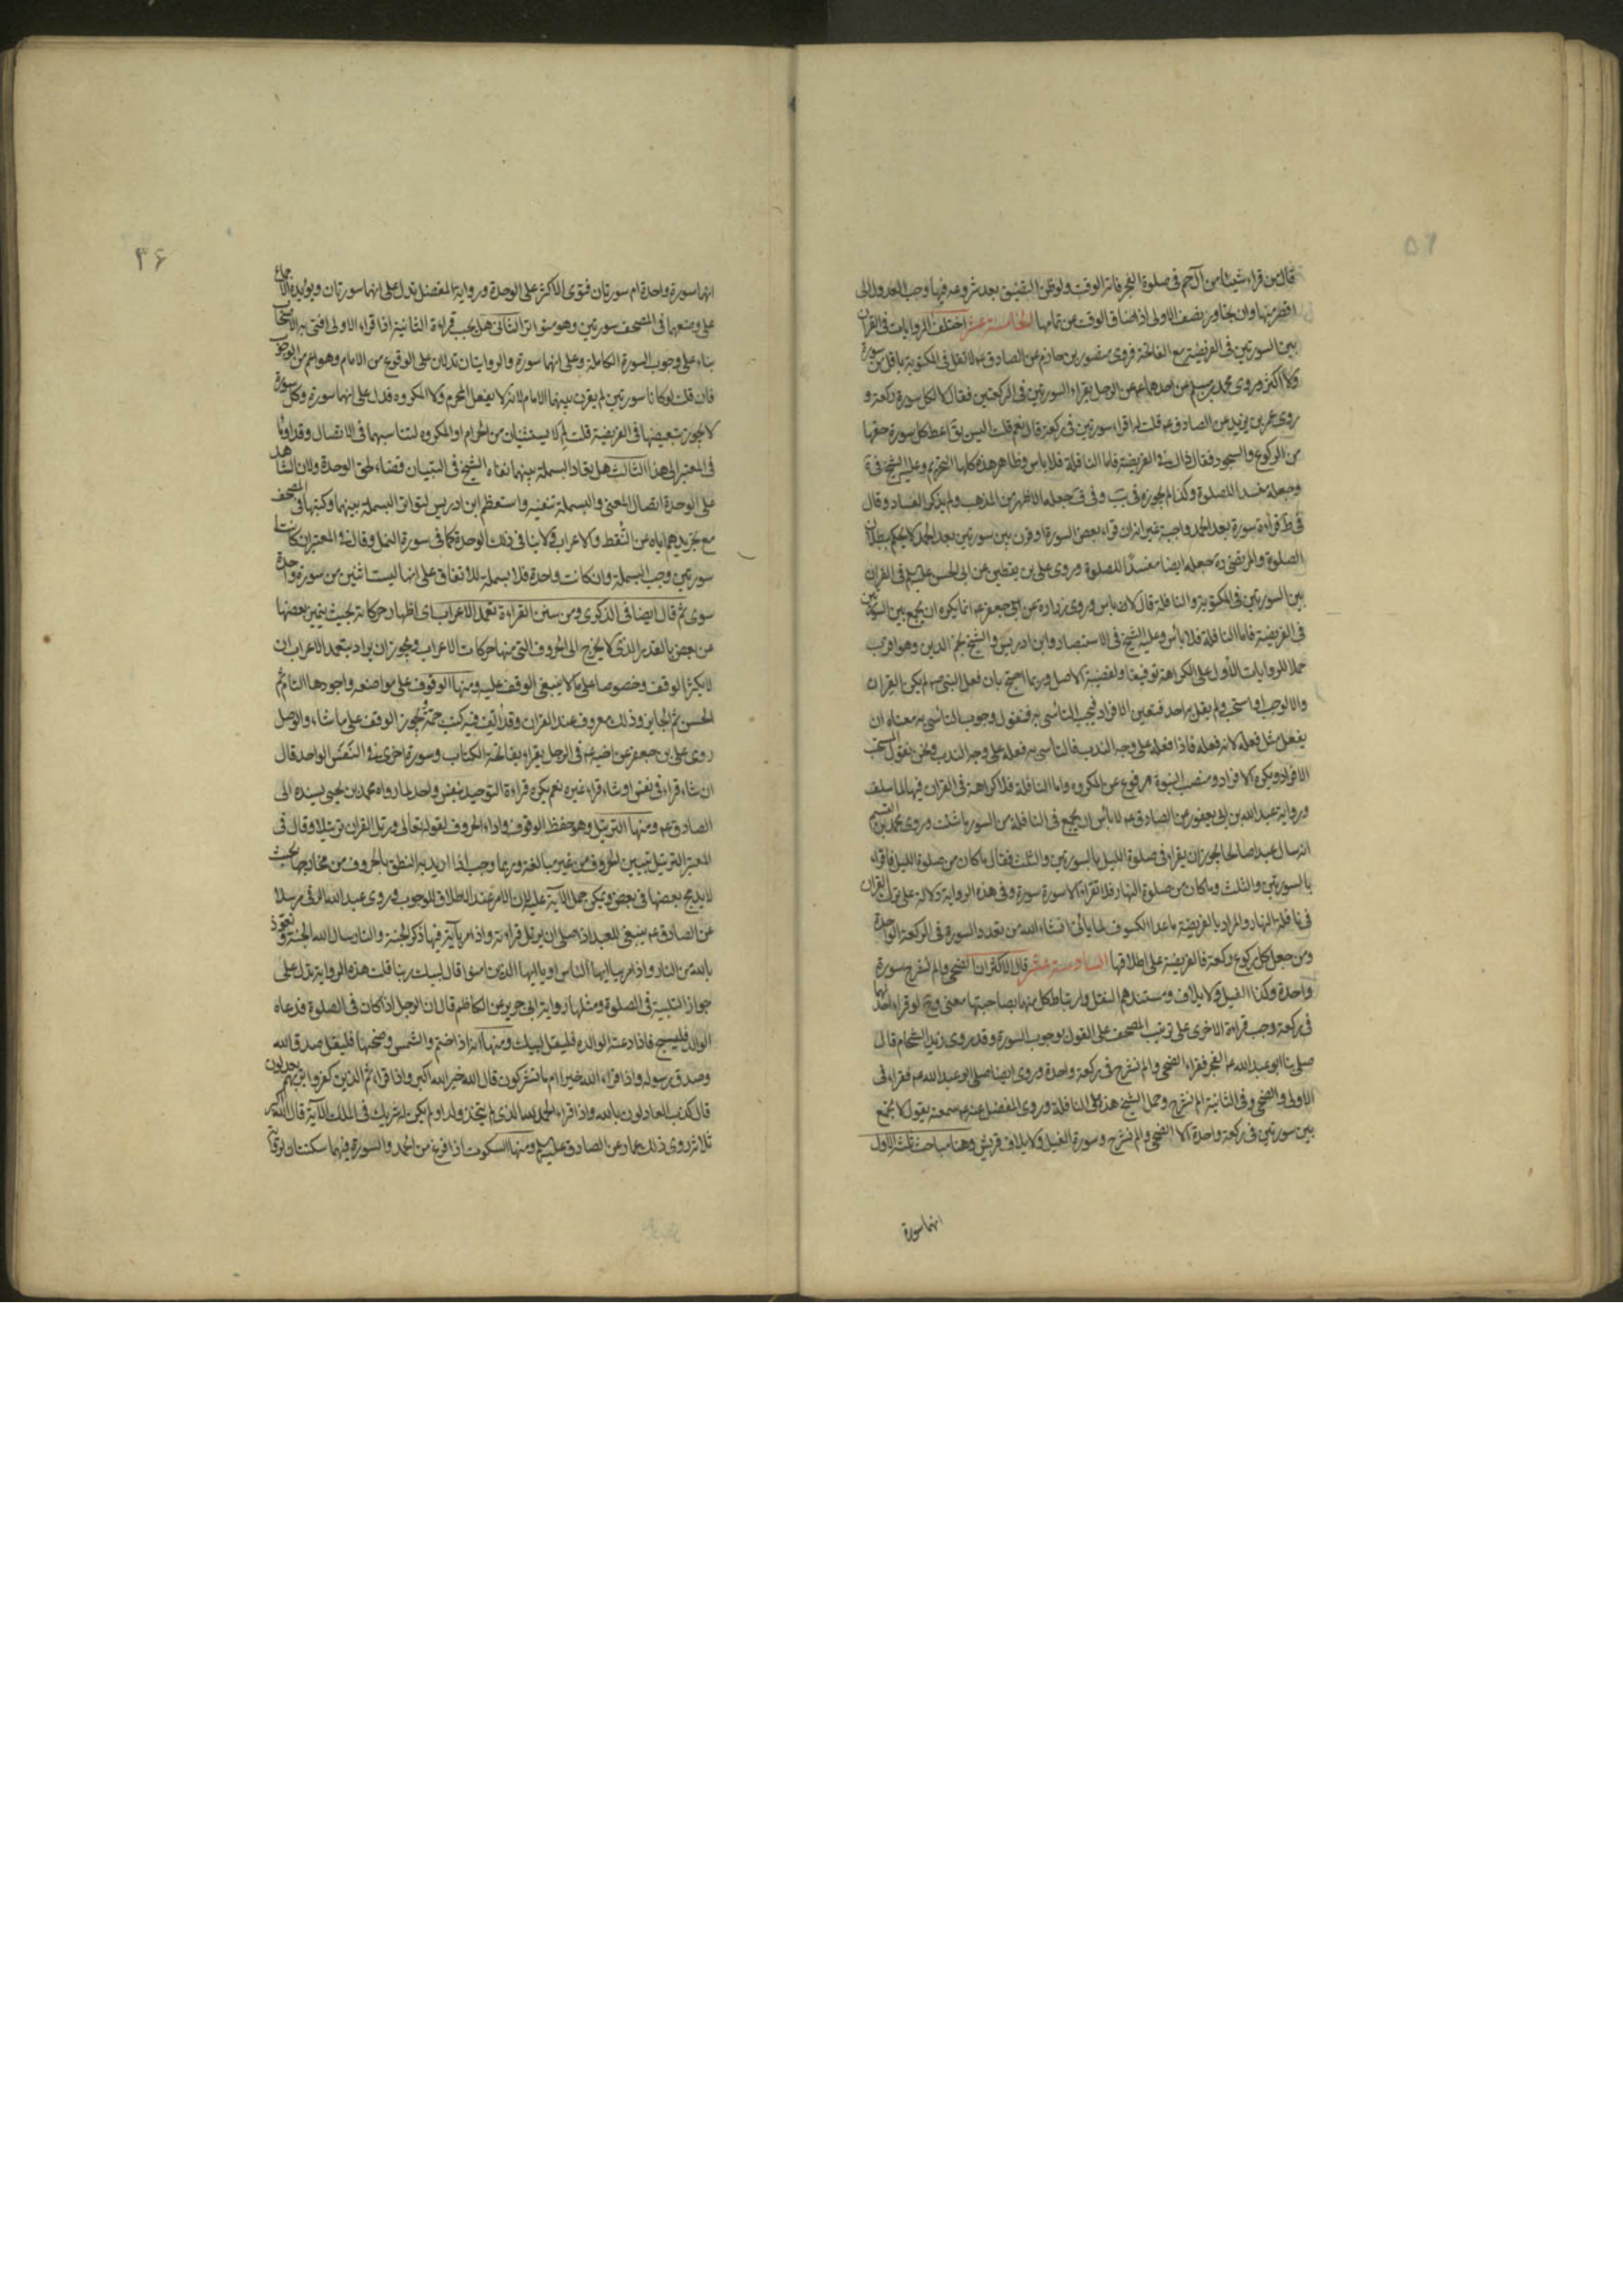 ٥٦
قال من قراء شيئا من آل حم فى صلوة الفجر فاته الوقت ولو ظن الضيق بعد شروعه فيها وجب العدول الى
اقصر منها وان تجاوز نصف الاولى اذا ضاق الوقت عن تمامها الخامسة عشر اختلف الروايات فى القران
بين السورتين فى الفريضة مع الفاتحة فروى منصور بن حازم عن الصادق ع م لا تقرأ فى المكتوبة باقل من سورة
ولا اكثر وروى محمد بن مسلم عن احدهما ع م عن الرجل يقراء السورتين فى الركعتين فقال لا لكل سورة ركعة و
روى عمر بن يزيد عن الصادق ع م قلت له اقراء سورتين فى ركعة قال نعم قلت اليس يق اعط كل سورة حقها
من الركوع والسجود فقال ذاك فى الفريضة فاما النافلة فلا باس وظاهر هذه كلها التحريم وعليه الشيخ فى ية
وجعله مفسدا للصلوة وكذا لم يجوزه فى وفى ف جعله الاظهر من المذهب ولم يذكر الفساد وقال
فى ط قراءة سورة بعد الحمد واجبة غير انه ان قراء بعض السورة او قرن بين سورتين بعد الحمد لا يحكم ببطلان
الصلوة والمرتضى ره جعله ايضا مفسدا للصلوة وروى على بن يقطين عن ابى الحسن عليه السلم فى القران
بين السورتين فى المكتوبة والنافلة قال لا باس وروى زرارة عن ابى جعفر ع م انما يكره ان يجمع بين السورتين
فى الفريضة فاما النافلة فلا بأس وعليه الشيخ فى الاستبصار وابن ادريس والشيخ نجم الدين وهو اقرب
حملا للروايات الاول على الكراهة توفيقا ولقضية الاصل وربما احتج بان فعل النبى ص لم يكن بالقران
والا لوجب او استحب ولم يقل به احد فتعين الافراد فيجب التأسى به فنقول وجوب التأسى به معناه ان
يفعل مثل فعله لانه فعله فاذا فعله على وجه الندب فالتاسى به فعله على وجه الندب ونحن نقول المستحب
الافراد ويكره الافراد ومنصب النبوة مرفوع عن المكروه واما النافلة فلا كراهة فى القران فيها لما سلف
ورواية عبد الله بن ابى يعفور عن الصادق ع م لا بأس ان يجمع فى النافلة من السور ما شئت وروى محمد بن القسم
انه سال عبدا صالحا ايجوز ان يقراء فى صلوة الليل بالسورتين والثلث فقال ما كان من صلوة الليل فاقراء
بالسورتين والثلث وما كان من صلوة النهار فلا تقراء الا سورة سورة وفى هذه الرواية دلالة على ترك القران
فى نافلة النهار والمراد بالفريضة ما عدا الكسوف لما يأتى انشاء الله من تعدد السورة فى الركعة الواحدة
ومن جعل كل ركوع ركعة فالفريضة على اطلاقها السادسة عشر قال الاكثر ان الضحى والم نشرح سورة
واحدة وكذا الفيل ولايلاف ومستندهم النقل وارتباط كل منهما بصاحبتها معنى وح لو قراء احدهما
فى ركعة وجب قراءة الاخرى على ترتيب المصحف على القول بوجوب السورة وقد روى زيد الشحام قال
صلى بنا ابو عبد الله ع م الفجر فقراء الضحى والم نشرح فى ركعة واحدة وروى ايضا صلى ابو عبد الله ع م فقراء فى
الاولى والضحى وفى الثانية الم نشرح وحمل الشيخ هذه على النافلة وروى المفضل عنه ع م سمعته يقول لا تجمع
بين سورتين فى ركعة واحدة الا الضحى والم نشرح وسورة الفيل ولايلاف قريش وهنا مباحث ثلثة الاول
انهما سورة
٣٦
انهما سورة واحدة ام سورتان فتوى الاكثر على الوحدة ورواية المفضل تدل على انهما سورتان ويؤيده الاجماع
على وضعهما فى المصحف سورتين وهو متواتر الثانى هل يجب قراءة الثانية اذا قراء الاولى افتى به الاصحاب
بناء على وجوب السورة الكاملة وعلى انهما سورة والروايتان تدلان على الوقوع من الامام وهو اعم من الوجوب
فان قلت لو كانا سورتين لم يقرن بينهما الامام لانه لا يفعل المحرم ولا المكروه فدل على انهما سورة وكل سورة
لا يجوز تبعيضها فى الفريضة قلت لم لا يستثنيان من الحرام او المكروه لتناسبهما فى الاتصال وقد اومأ
فى المعتبر الى هذا الثالث هل يعاد البسملة بينهما نفاه الشيخ فى التبيان قضاء لحق الوحدة ولان الشاهد
على الوحدة اتصال المعنى والبسملة تنفيه واستعظم ابن ادريس لتواتر البسملة بينهما وكتبها فى المصحف
مع تجريدهم اياه من النقط والاعراب ولا ينافى ذلك الوحدة كما فى سورة النمل وقال فى المعتبر ان كانتا
سورتين وجب البسملة وان كانت واحدة فلا بسملة للاتفاق على انها ليست اثنين من سورة واحدة
سوى ثم قال ايضا فى الذكرى ومن سنن القراءة تعمد الاعراب اى اظهار حركاته بحيث يتميز بعضها
عن بعض بالقدر الذى لا يخرج الى الحروف التى منها حركات الاعراب ويجوز ان يراد بتعمد الاعراب ان
لا يكثر الوقف وخصوصا على ما لا ينبغى الوقف عليه ومنها الوقوف على مواضعه واجودها التام ثم
الحسن ثم الجايز وذلك معروف عند القراء وقد الف فيه كتب جمة ويجوز الوقف على ما شاء والوصل
روى على بن جعفر عن اخيه ع م فى الرجل يقراء بفاتحة الكتاب وسورة اخرى فى النفس الواحد قال
ان شاء قراء فى نفس او شاء قراء غيره نعم يكره قراءة التوحيد بنفس واحد لما رواه محمد بن يحيى بسنده الى
الصادق ع م ومنها الترتيل وهو حفظ الوقوف واداء الحروف لقوله تعالى ورتل القران ترتيلا وقال فى
المعتبر الترتيل تبيين الحروف من غير مبالغة وربما وجب اذا اريد به النطق بالحروف من مخارجها بحيث
لا يدمج بعضها فى بعض ويمكن حمل الآية عليه لان الامر عند الاطلاق للوجوب وروى عبد الله البرقى مرسلا
عن الصادق ع م ينبغى للعبد اذا صلى ان يرتل قراءته واذا مر بآية فيها ذكر الجنة والنار سال الله الجنة وتعوذ
بالله من النار واذا مر بيا ايها الناس او يا ايها الذين امنوا قال لبيك ربنا قلت هذه الرواية تدل على
جواز التلبية فى الصلوة ومثلها رواية ابى جرير عن الكاظم قال ان الرجل اذا كان فى الصلوة فدعاه
الوالد فليسبح فاذا دعته الوالدة فليقل لبيك ومنها انه اذا ختم والشمس وضحيها فليقل صدق الله
وصدق رسوله واذا قراء الله خير ام ما تشركون قال الله خير الله اكبر واذا قراء ثم الذين كفروا بربهم يعدلون
قال كذب العادلون بالله واذا قراء الحمد لله الذى لم يتخذ ولدا ولم يكن له شريك فى الملك الآية قال الله اكبر
ثلاثا روى ذلك عمار عن الصادق عليه السلم ومنها السكوت اذا فرغ من الحمد والسورة فهما سكتتان لرواية